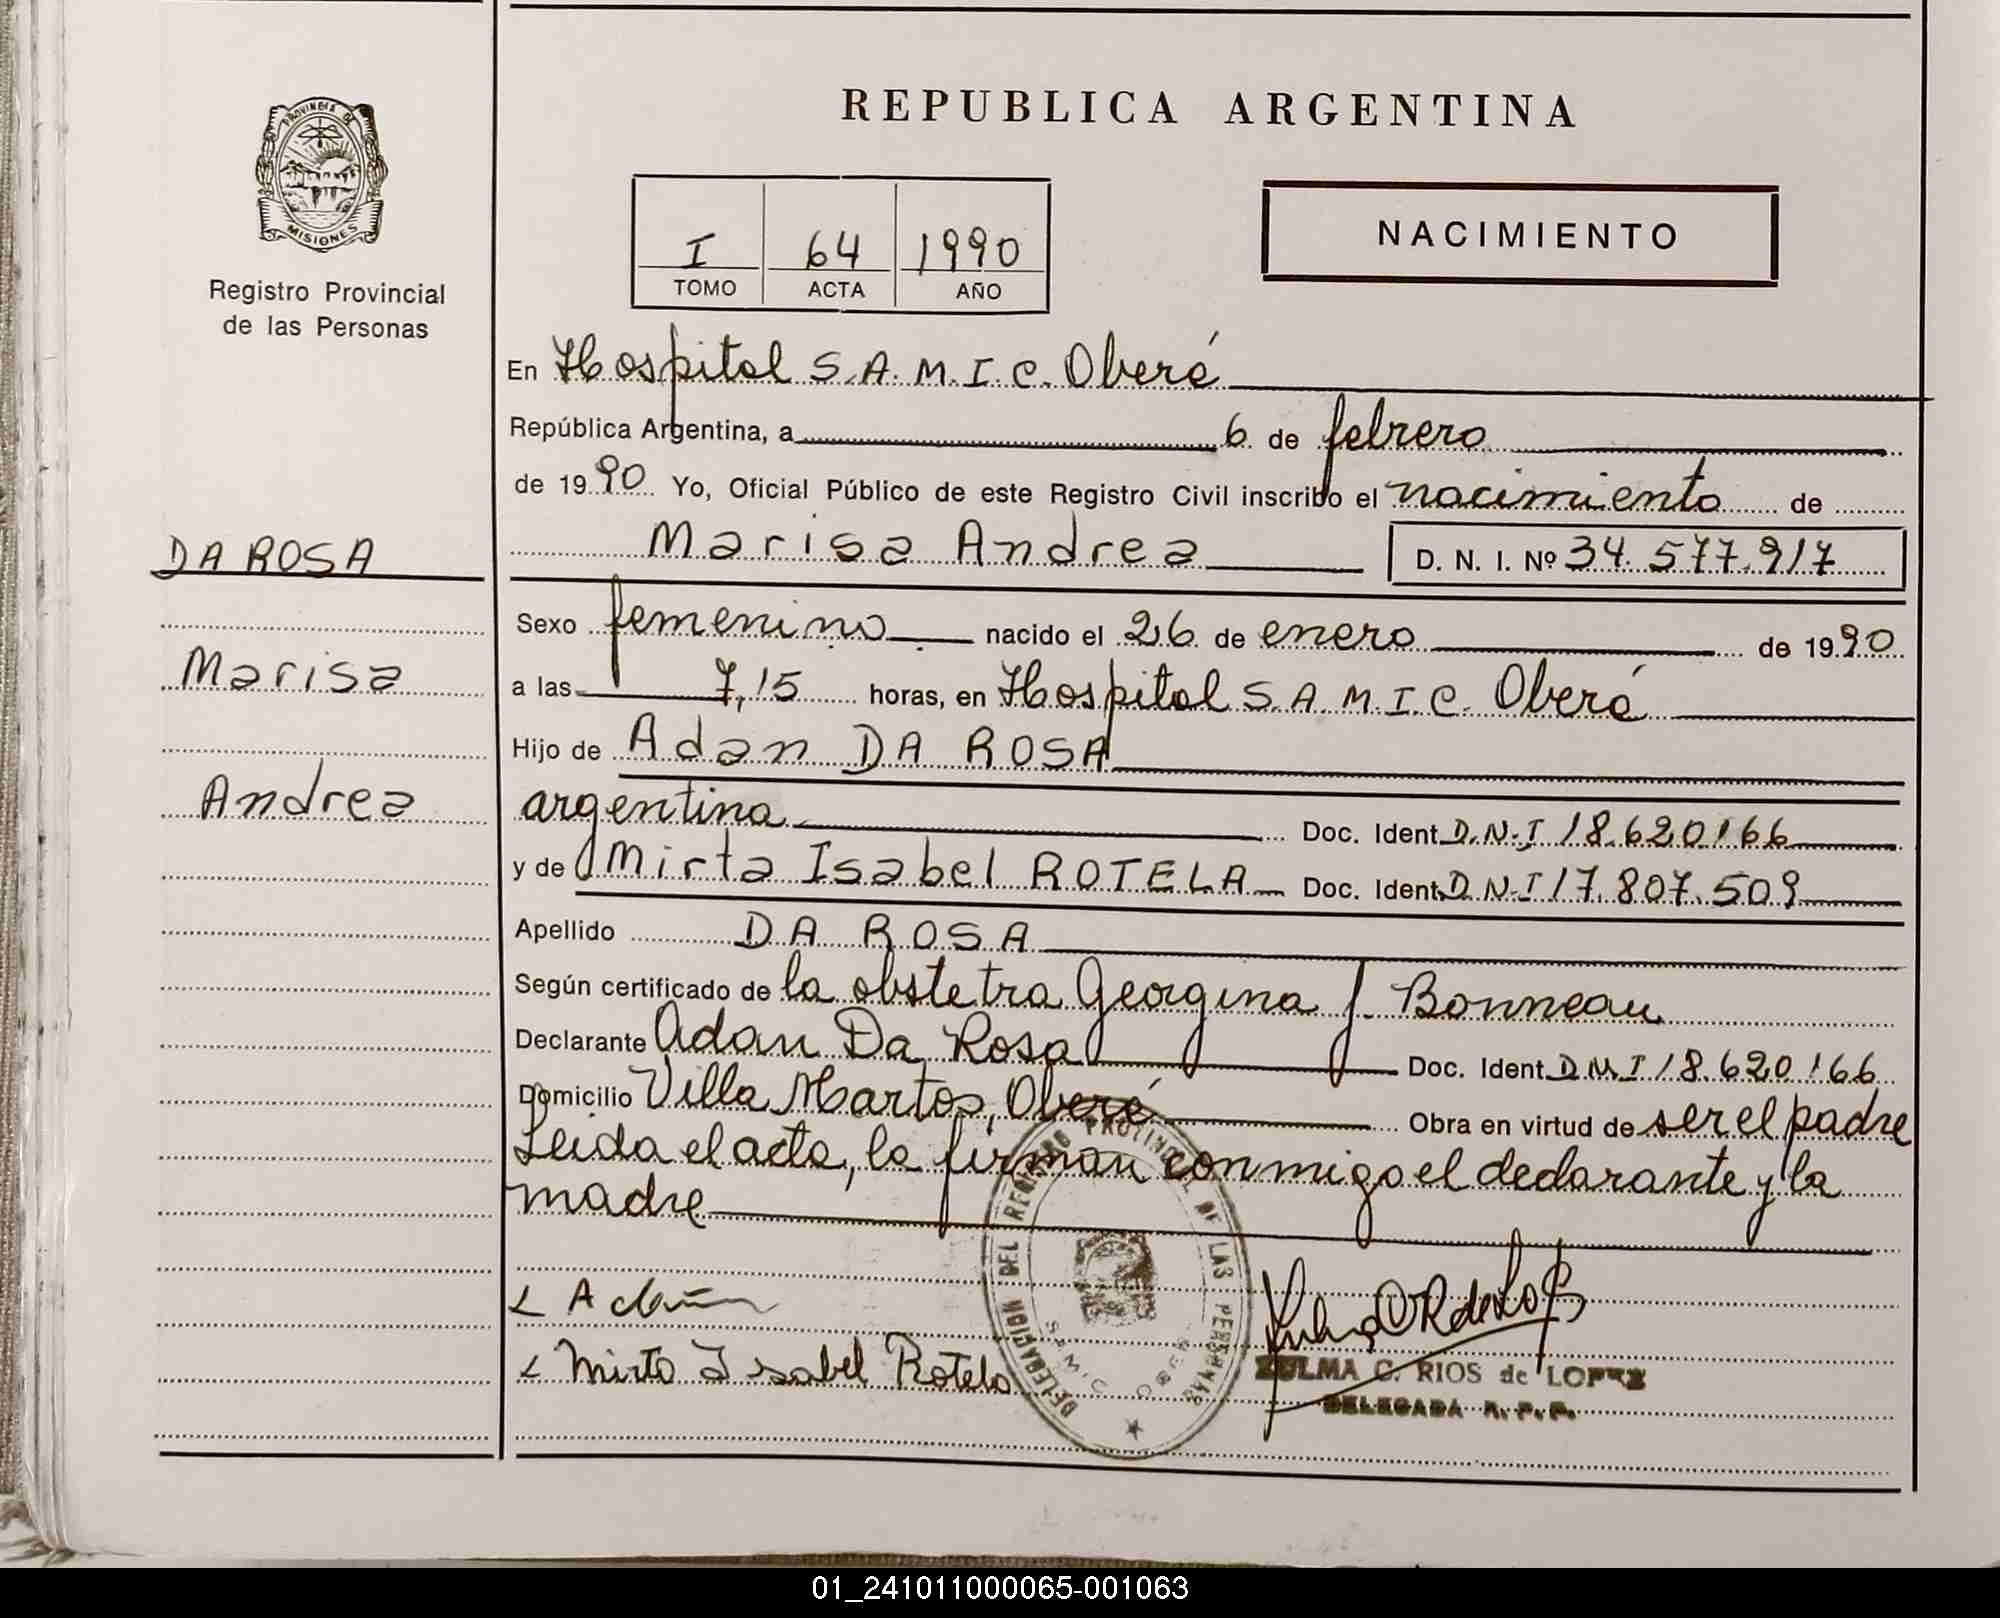 PROVINCIA DE
MISIONES
Registro Provincial
de las Personas
DA ROSA
Marisa
Andrea
REPUBLICA ARGENTINA
I 64 1990
TOMO ACTA AÑO
NACIMIENTO
En Hospital S.A.M.I.C. Oberá
República Argentina, a 6 de febrero
de 1990 Yo, Oficial Público de este Registro Civil inscribo el nacimiento de
Marisa Andrea D. N. I. Nº 34.577.917
Sexo femenino nacido el 26 de enero de 1990
a las 7,15 horas, en Hospital S.A.M.I.C. Oberá
Hijo de Adan DA ROSA
argentina Doc. Ident. D.N.I 18.620166
y de Mirta Isabel ROTELA Doc. Ident. D.N.I 17.807.509
Apellido DA ROSA
Según certificado de la obstetra Georgina J. Bonneau
Declarante Adan Da Rosa Doc. Ident. D.N.I 18.620166
Domicilio Villa Martos, Oberá Obra en virtud de ser el padre
Leida el acta, la firman conmigo el declarante y la
madre
Mirta Isabel Rotela
DELEGACION DEL REGISTRO PROVINCIAL DE LAS PERSONAS
S.A.M.I.C. OBERA
ZULMA C. RIOS de LOPEZ
DELEGADA R. P. P.
01_241011000065-001063